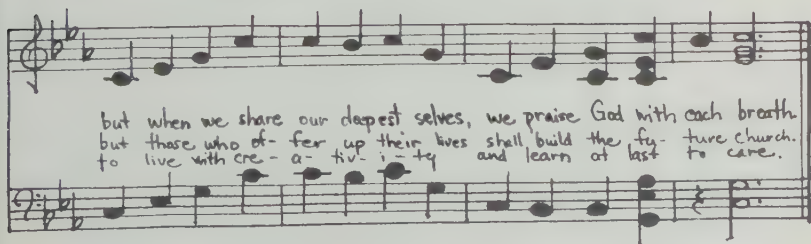 but when we share our deepest selves, we praise God with each breath.
but those who of-fer up their lives shall build the fu-ture church.
to live with cre-a-tiv-i-ty and learn at last to care.